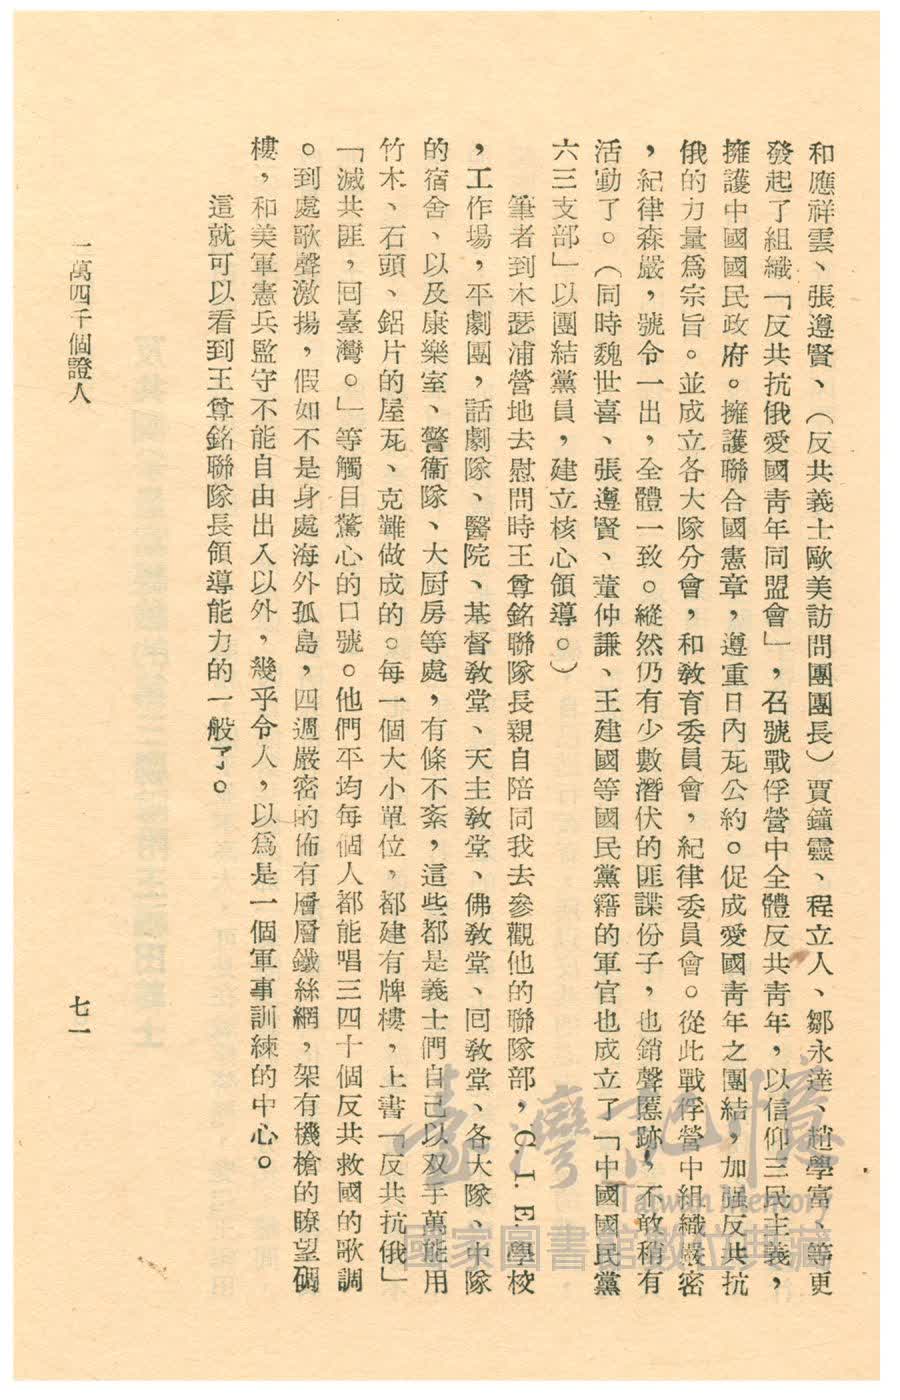 和應祥雲、張遵賢、（反共義士歐美訪問團團長）賈鐘靈、程立人、鄒永達、趙學富、等更
發起了組織「反共抗俄愛國青年同盟會」，召號戰俘營中全體反共青年，以信仰三民主義，
擁護中國國民政府。擁護聯合國憲章，遵重日內瓦公約。促成愛國青年之團結，加强反共抗
俄的力量爲宗旨。並成立各大隊分會，和敎育委員會，紀律委員會。從此戰俘營中組織嚴密
，紀律森嚴，號令一出，全體一致。縱然仍有少數潛伏的匪諜份子，也銷聲匿跡，不敢稍有
活動了。（同時魏世喜、張遵賢、董仲謙、王建國等國民黨籍的軍官也成立了「中國國民黨
六三支部」以團結黨員，建立核心領導。）
筆者到木瑟浦營地去慰問時王尊銘聯隊長親自陪同我去參觀他的聯隊部，C.I.E.學校
，工作場，平劇團，話劇隊、醫院、基督敎堂、天主敎堂、佛敎堂、回敎堂、各大隊、中隊
的宿舍、以及康樂室、警衞隊、大厨房等處，有條不紊，這些都是義士們自己以双手萬能用
竹木、石頭、鋁片的屋瓦、克難做成的。每一個大小單位，都建有牌樓，上書「反共抗俄」
「滅共匪，回臺灣。」等觸目驚心的口號。他們平均每個人都能唱三四十個反共救國的歌調
。到處歌聲激揚，假如不是身處海外孤島，四週嚴密的佈有層層鐵絲網，架有機槍的瞭望碉
樓，和美軍憲兵監守不能自由出入以外，幾乎令人，以爲是一個軍事訓練的中心。
這就可以看到王尊銘聯隊長領導能力的一般了。
一萬四千個證人
七一
臺灣記憶
Taiwan Memory
國家圖書館數位典藏